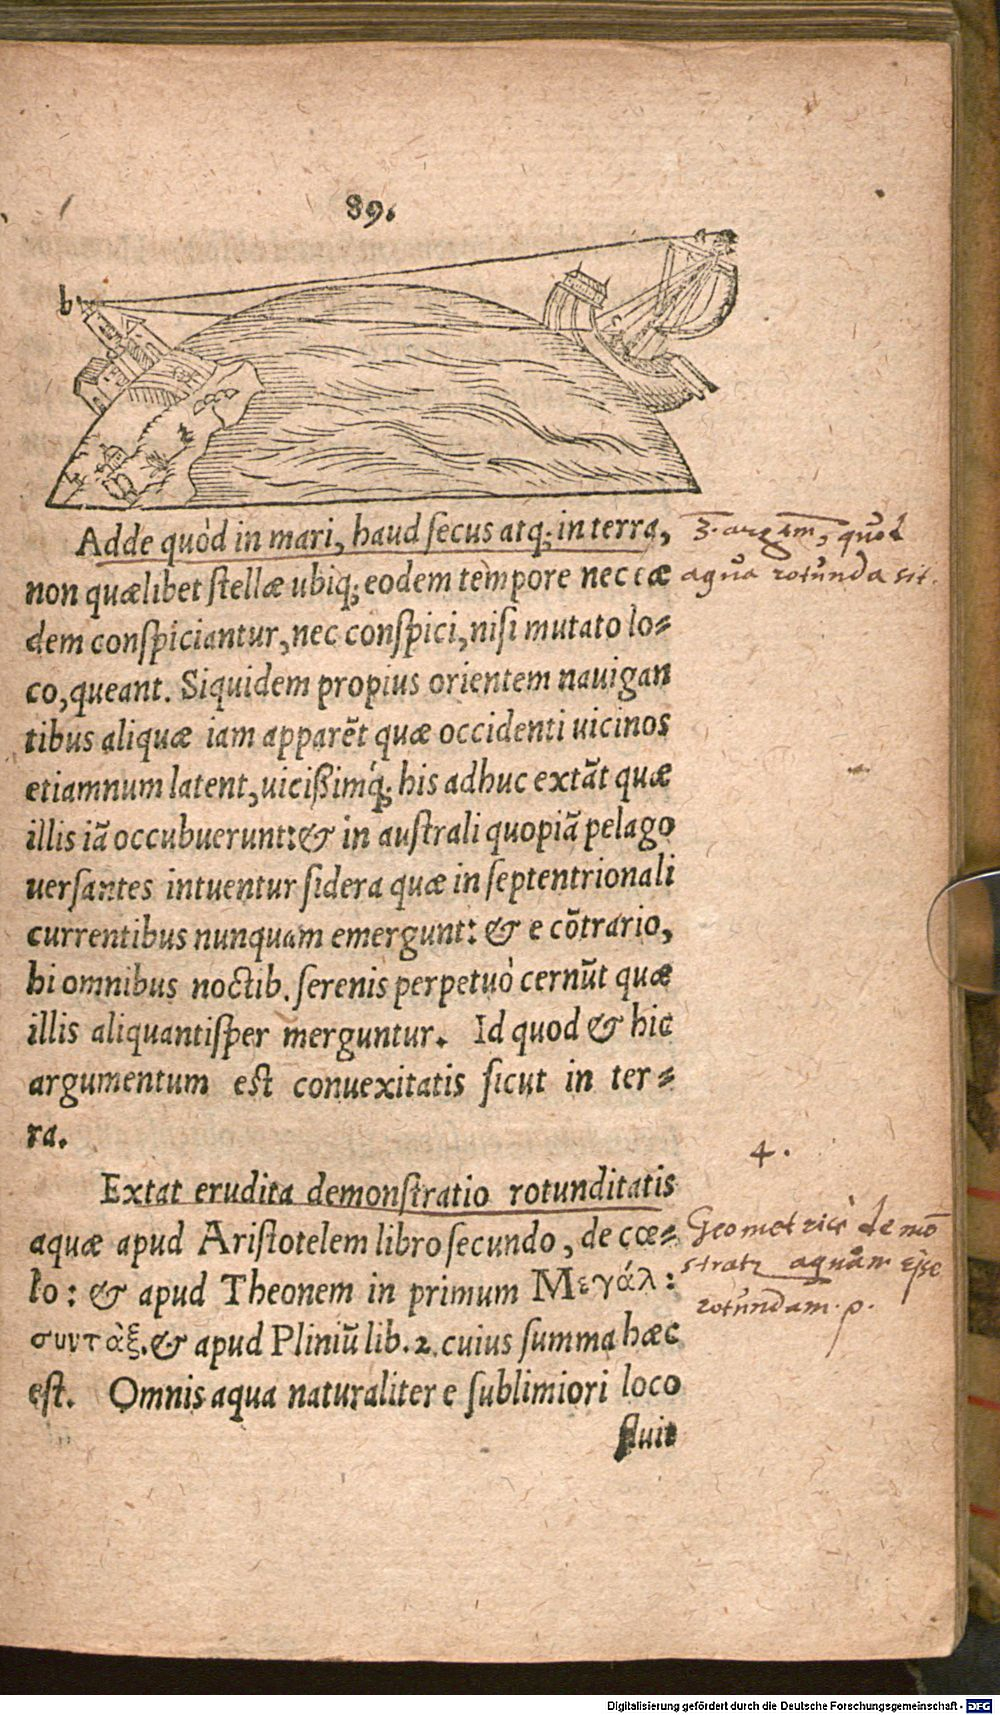 89.
b
Adde quòd in mari, haud secus atq; in terra,
non quælibet stellæ ubiq; eodem tempore nec eæ
dem conspiciantur, nec conspici, nisi mutato lo=
co, queant. Siquidem propius orientem nauigan
tibus aliquæ iam apparẽt quæ occidenti uicinos
etiamnum latent, uicißimq́; his adhuc extãt quæ
illis iã occubuerunt: & in australi quopiã pelago
uersantes intuentur sidera quæ in septentrionali
currentibus nunquam emergunt: & e cõtrario,
hi omnibus noctib. serenis perpetuò cernũt quæ
illis aliquantisper merguntur. Id quod & hic
argumentum est conuexitatis sicut in ter=
ra.
Extat erudita demonstratio rotunditatis
aquæ apud Aristotelem libro secundo, de cœ=
lo: & apud Theonem in primum Μεγάλ:
συντὰξ. & apud Pliniũ lib. 2. cuius summa hæc
est. Omnis aqua naturaliter e sublimiori loco
fluit
3. argum, quod
aqua rotunda sit.
4.
Geometricè demõ
strat aquam esse
rotundam. p.
Digitalisierung gefördert durch die Deutsche Forschungsgemeinschaft - DFG